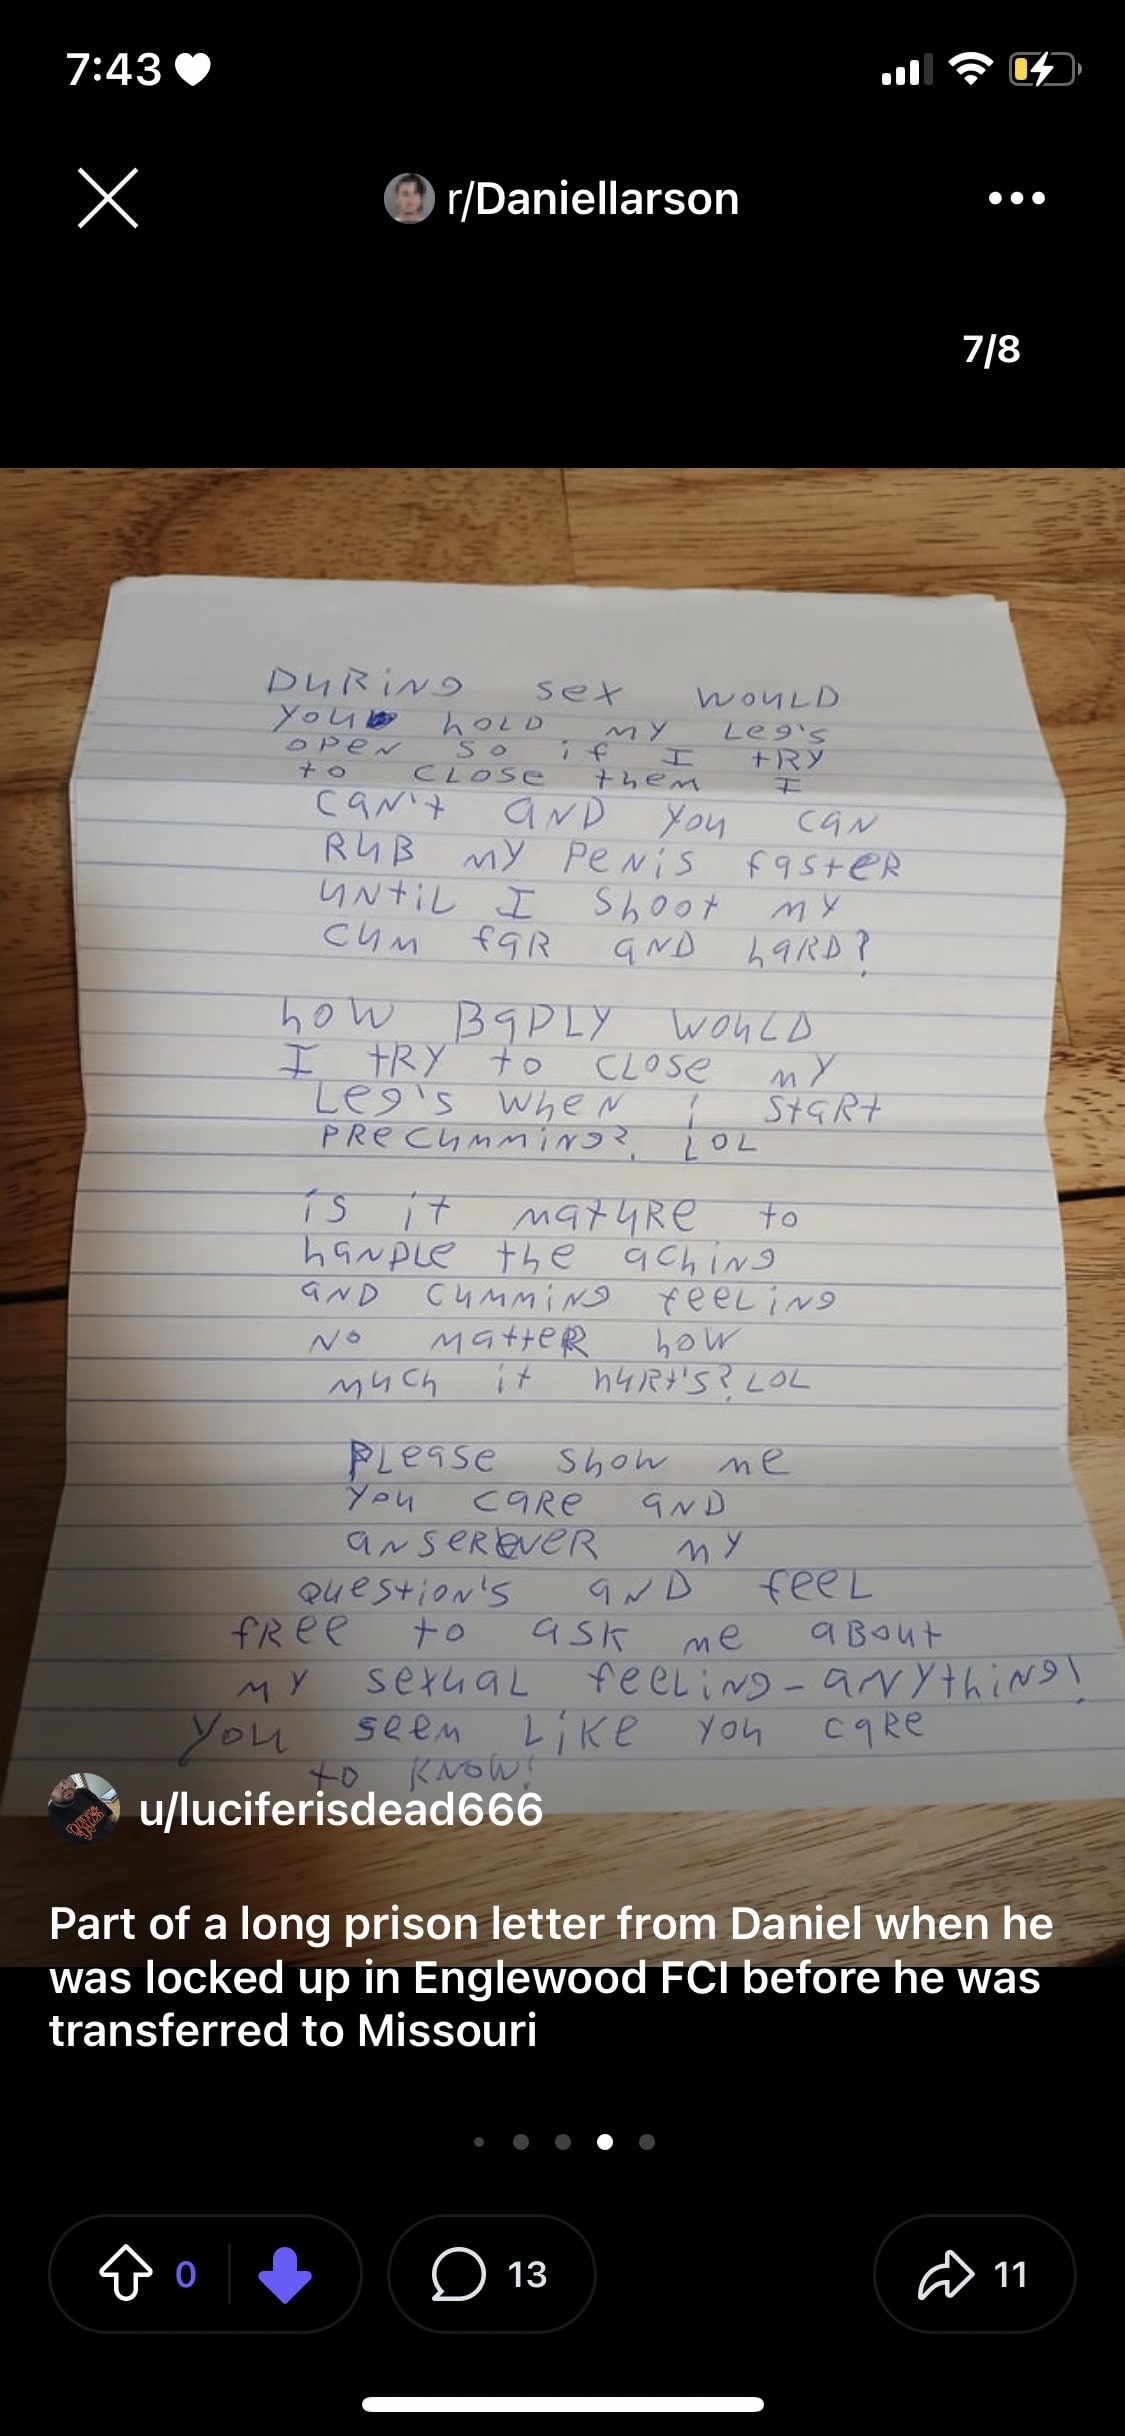 7:43
r/Daniellarson
7/8
DURING sex WOULD
you hOLD MY Leg's
open so if I tRY
to CLOSe them I
can't AND you can
RUB MY Penis faster
UNtiL I Shoot MY
CUM faR AND haRD?
how BADLY WOULD
I tRY to CLOSe MY
Leg's wheN I StaRt
PReCUMMiNg?. LOL
is it matURe to
haNDLe the aching
AND CUMMiNg feeLiNg
No MatteR how
Much it hURt's? LOL
PLease Show me
you caRe AND
MY
question's AND feeL
fRee to ask me about
MY sexuaL feeLiNg-anythiNg!
You seem Like you caRe
to KNow!
u/luciferisdead666
Part of a long prison letter from Daniel when he
was locked up in Englewood FCI before he was
transferred to Missouri
0 13 11